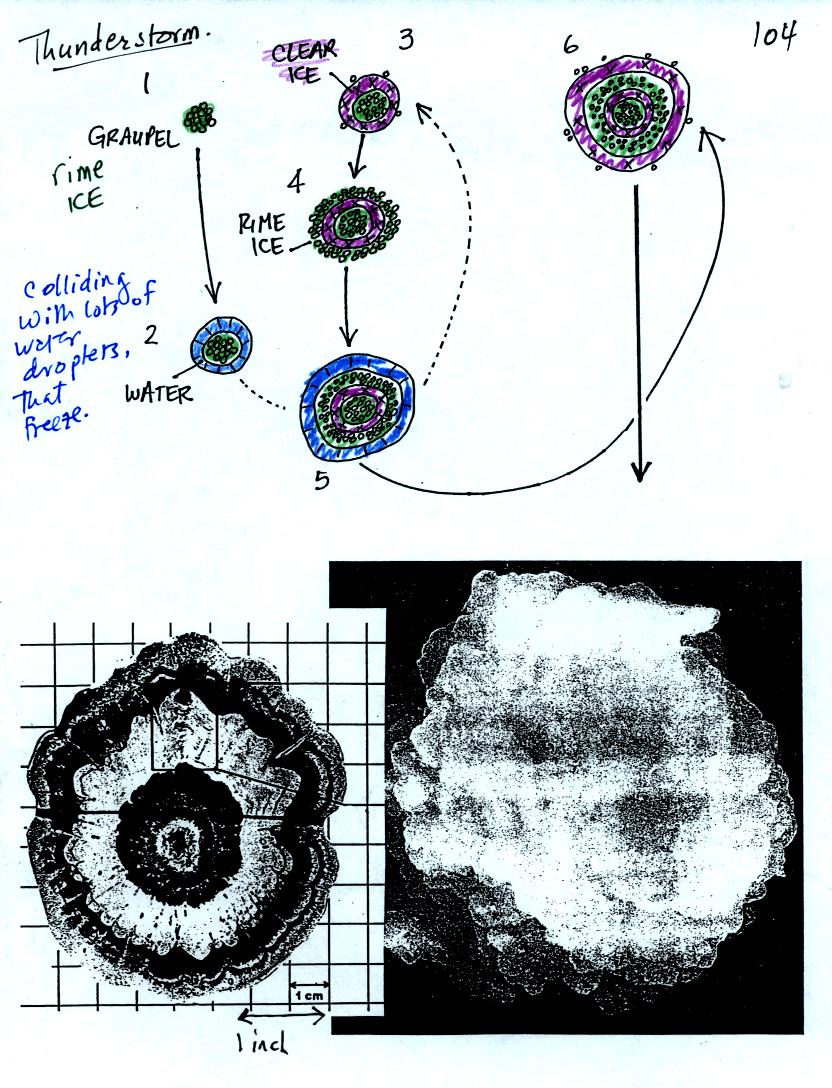 Thunderstorm.
104
1
GRAUPEL
rime
ICE
Colliding
with lots of
water
droplets,
that
freeze.
2
WATER
3
CLEAR
ICE
4
RIME
ICE
5
6
1 cm
1 inch